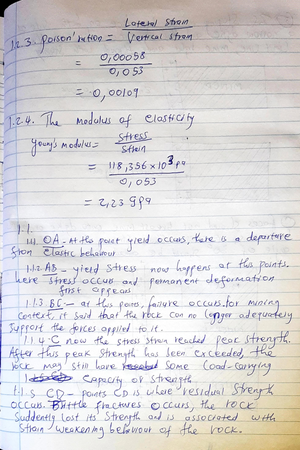 Lateral Strain
1.2.3. poison' ration = Vertical strain
= 0,00058
0,053
= 0,00109
1.2.4. The modulus of elasticity
young's modulus = Stress
Strain
= 118,356 x 10³ pa
0,053
= 2,23 gpa
1.1.
1.1.1. OA - At the point yield occurs, there is a departure
from elastic behaviour
1.1.2. AB - yield stress now happens at this points.
here stress occurs and permanent deformation
first appears
1.1.3. BC - at this point, failure occurs. for mining
context, it said that the rock can no longer adequately
Support the forces applied to it.
1.1.4 C now the stress strain reached peak strength.
After this peak strength has been exceeded, the
rock may still have some Load-carrying
capacity or strength.
1.1.5 CD - points CD is where residual strength
occurs. Brittle fractures occurs, the rock
Suddently lost its strength and is associated with
strain weakening behaviour of the rock.